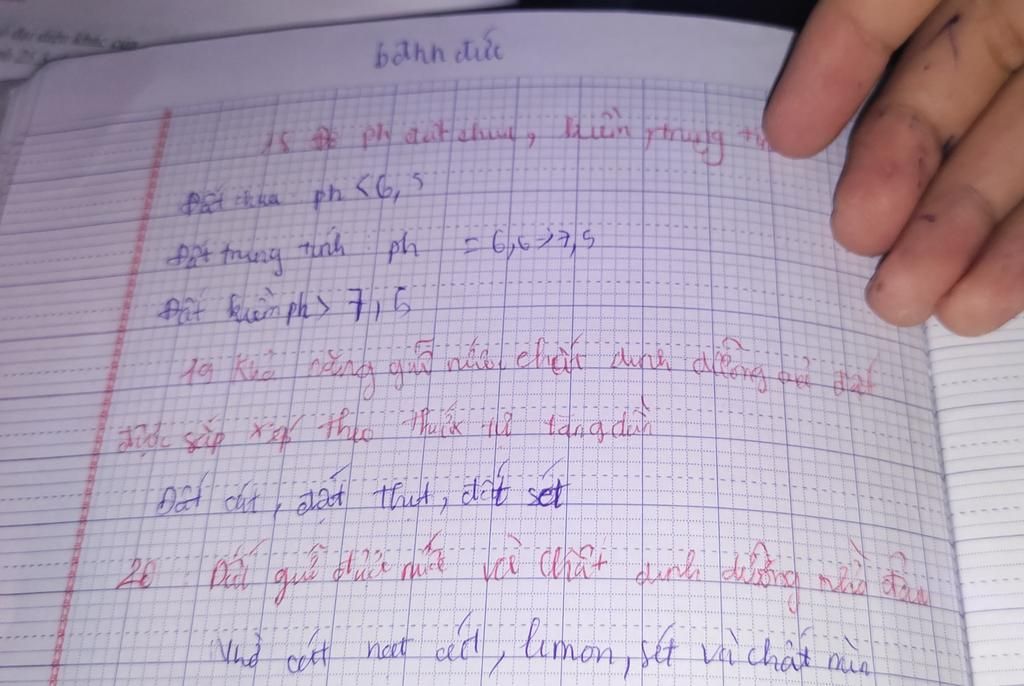 bđhh đức
18 ph đất chua, kiềm, trung
Đất chua ph < 6,5
Đất trung tính ph = 6,6 > 7,5
Đất kiềm ph > 7,5
19 Khả năng giữ nước, chất dinh dưỡng đất
được sắp xếp theo từ tăng dần
Đất cát, đất thịt, đất sét
20 Đất giữ được nước và chất dinh dưỡng nhờ đâu
Nhờ các hạt cát, limon, sét và chất mùn